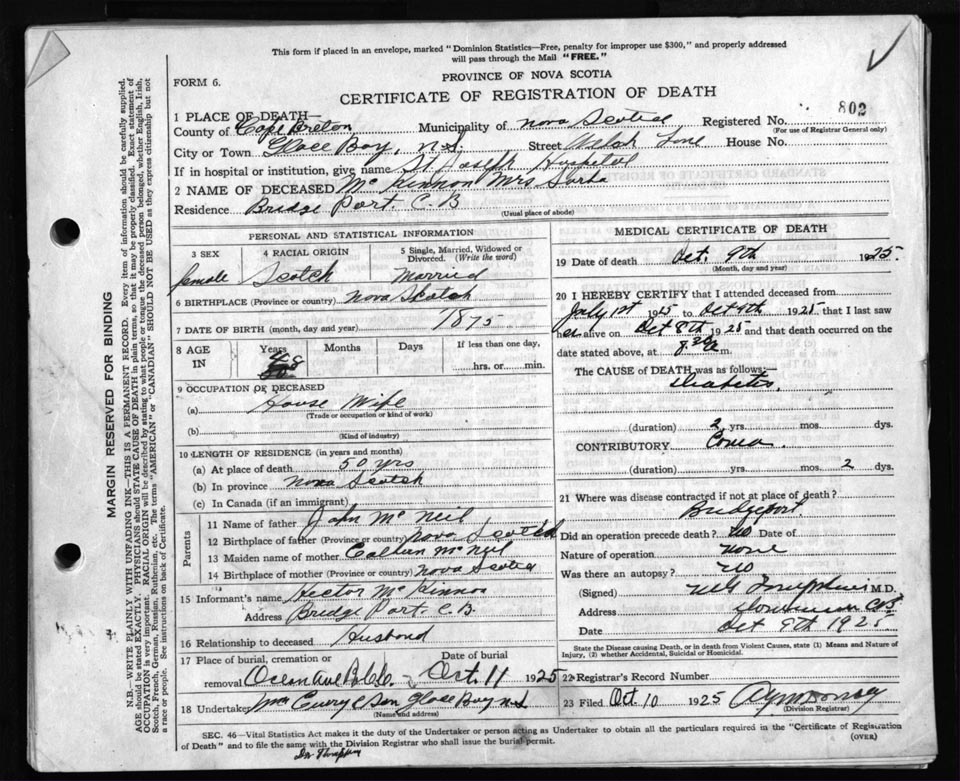 This form if placed in an envelope, marked "Dominion Statistics—Free, penalty for improper use $300," and properly addressed
will pass through the Mail "FREE."
FORM 6.
PROVINCE OF NOVA SCOTIA
CERTIFICATE OF REGISTRATION OF DEATH
802
1 PLACE OF DEATH—
County of Cape Breton Municipality of Nova Scotia Registered No.
(For use of Registrar General only)
City or Town Glace Bay, N.S. Street Welsh Lane House No.
If in hospital or institution, give name St Joseph Hospital
2 NAME OF DECEASED Mc Kinnon Mrs
Residence Bridge Port. C. B
(Usual place of abode)
PERSONAL AND STATISTICAL INFORMATION
3 SEX 4 RACIAL ORIGIN 5 Single, Married, Widowed or Divorced (Write the word)
female Scotch Married
6 BIRTHPLACE (Province or country) Nova Scotch
7 DATE OF BIRTH (month, day and year) 1875
8 AGE IN Years Months Days If less than one day,
hrs. or min.
9 OCCUPATION OF DECEASED
(a) House Wife
(Trade or occupation or kind of work)
(b)
(Kind of industry)
10 LENGTH OF RESIDENCE (in years and months)
(a) At place of death 50 yrs
(b) In province Nova Scotch
(c) In Canada (if an immigrant)
Parents
11 Name of father John Mc Neil
12 Birthplace of father (Province or country) Nova Scotch
13 Maiden name of mother Mc Neil
14 Birthplace of mother (Province or country) Nova Scotia
15 Informant's name Hector Mc Kinnon
Address Bridge Port C.B.
16 Relationship to deceased Husband
17 Place of burial, cremation or removal Date of burial
Ocean Ave Oct 11 1925
18 Undertaker Glace Bay N.S
(Name and address)
MEDICAL CERTIFICATE OF DEATH
19 Date of death Oct. 9th 1925.
(Month, day and year)
20 I HEREBY CERTIFY that I attended deceased from
July 1st 1925 to Oct 9th 1925, that I last saw
her alive on Oct 8th 1925 and that death occurred on
date stated above, at 8 30 a m.
The CAUSE of DEATH was as follows:—
Diabetes.
(duration) 2 yrs. mos. dys.
CONTRIBUTORY. Coma.
(duration) yrs. mos. 2 dys.
21 Where was disease contracted if not at place of death?
Bridgeport.
Did an operation precede death? no
Nature of operation none
Was there an autopsy? no
(Signed) M.D.
Address Dominion CB
Date Oct 9th 1925
State the Disease causing Death, or in death from Violent Causes, state (1) Means and Nature of
Injury, (2) whether Accidental, Suicidal or Homicidal.
22 Registrar's Record Number
23 Filed Oct 10 1925
(Division Registrar)
SEC. 46—Vital Statistics Act makes it the duty of the Undertaker or person acting as Undertaker to obtain all the particulars required in the "Certificate of Registration
of Death" and to file the same with the Division Registrar who shall issue the burial permit.
(OVER)
MARGIN RESERVED FOR BINDING
N.B.—WRITE PLAINLY WITH UNFADING INK—THIS IS A PERMANENT RECORD. Every item of information should be carefully supplied.
AGE should be stated EXACTLY. PHYSICIANS should STATE CAUSE OF DEATH in plain terms, so that it may be properly classified. Exact statement of
OCCUPATION is very important. RACIAL ORIGIN will be described by stating to what people or tongue the deceased person belonged, whether English, Irish,
Scotch, French, German, Russian, Ruthenian, etc. The terms "AMERICAN" or "CANADIAN" SHOULD NOT BE USED as they express citizenship but not
a race or people. See instructions on back of Certificate.